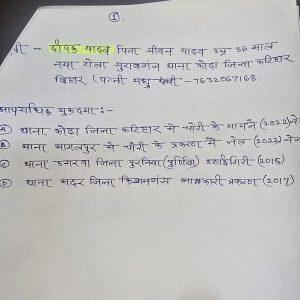 ①.
दीपक यादव पिता जीवन यादव उम्र 36 साल
नया टोला जुरावगंज थाना कोढ़ा जिला कटिहार
बिहार (पत्नी मधु देवी - 7632067168.
आपराधिक मुकदमा :-
Ⓐ थाना कोढ़ा जिला कटिहार से चोरी के मामले (2022)
Ⓑ थाना भागलपुर में चोरी के प्रकरण से जेल (2022) जेल
थाना डगरवा जिला पुरनिया (पूर्णिया) उठाईगिरी (2015)
Ⓓ थाना सदर जिला किशनगंज प्रकरण (2017)